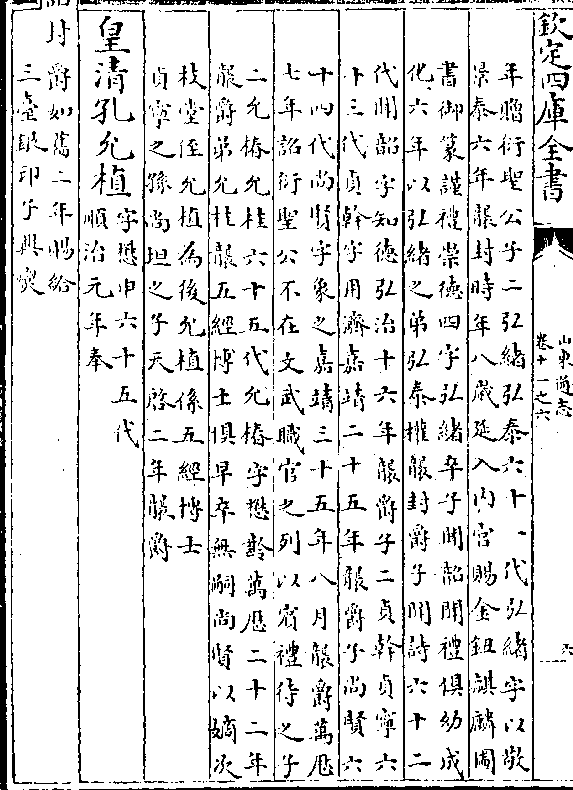 欽定四庫全書
山東通志
卷十一之六
六
年贈衍聖公子二弘緒弘泰六十一代弘緒字以敬
景泰六年襲封時年八歲延入內官賜金鈕麒麟圖
書御篆謹禮崇德四字弘緒卒子聞韶聞禮俱幼成
化六年以弘緒之弟弘泰權襲封爵子聞詩六十二
代聞韶字知德弘治十六年襲爵子二貞幹貞寧六
十三代貞幹字用濟嘉靖二十五年襲爵子尚賢六
十四代尚賢字象之嘉靖三十五年八月襲爵萬厯
七年詔衍聖公不在文武職官之列以賓禮待之子
二允椿允桂六十五代允椿字懋齡萬厯二十二年
襲爵弟允桂襲五經博士俱早卒無嗣尚賢以嫡次
枝堂侄允植為後允植係五經博士
貞寧之孫尚坦之子天啓二年襲爵
皇清孔允植字懋申六十五代
順治元年奉
詔封爵如舊二年賜給
三臺銀印子興燮